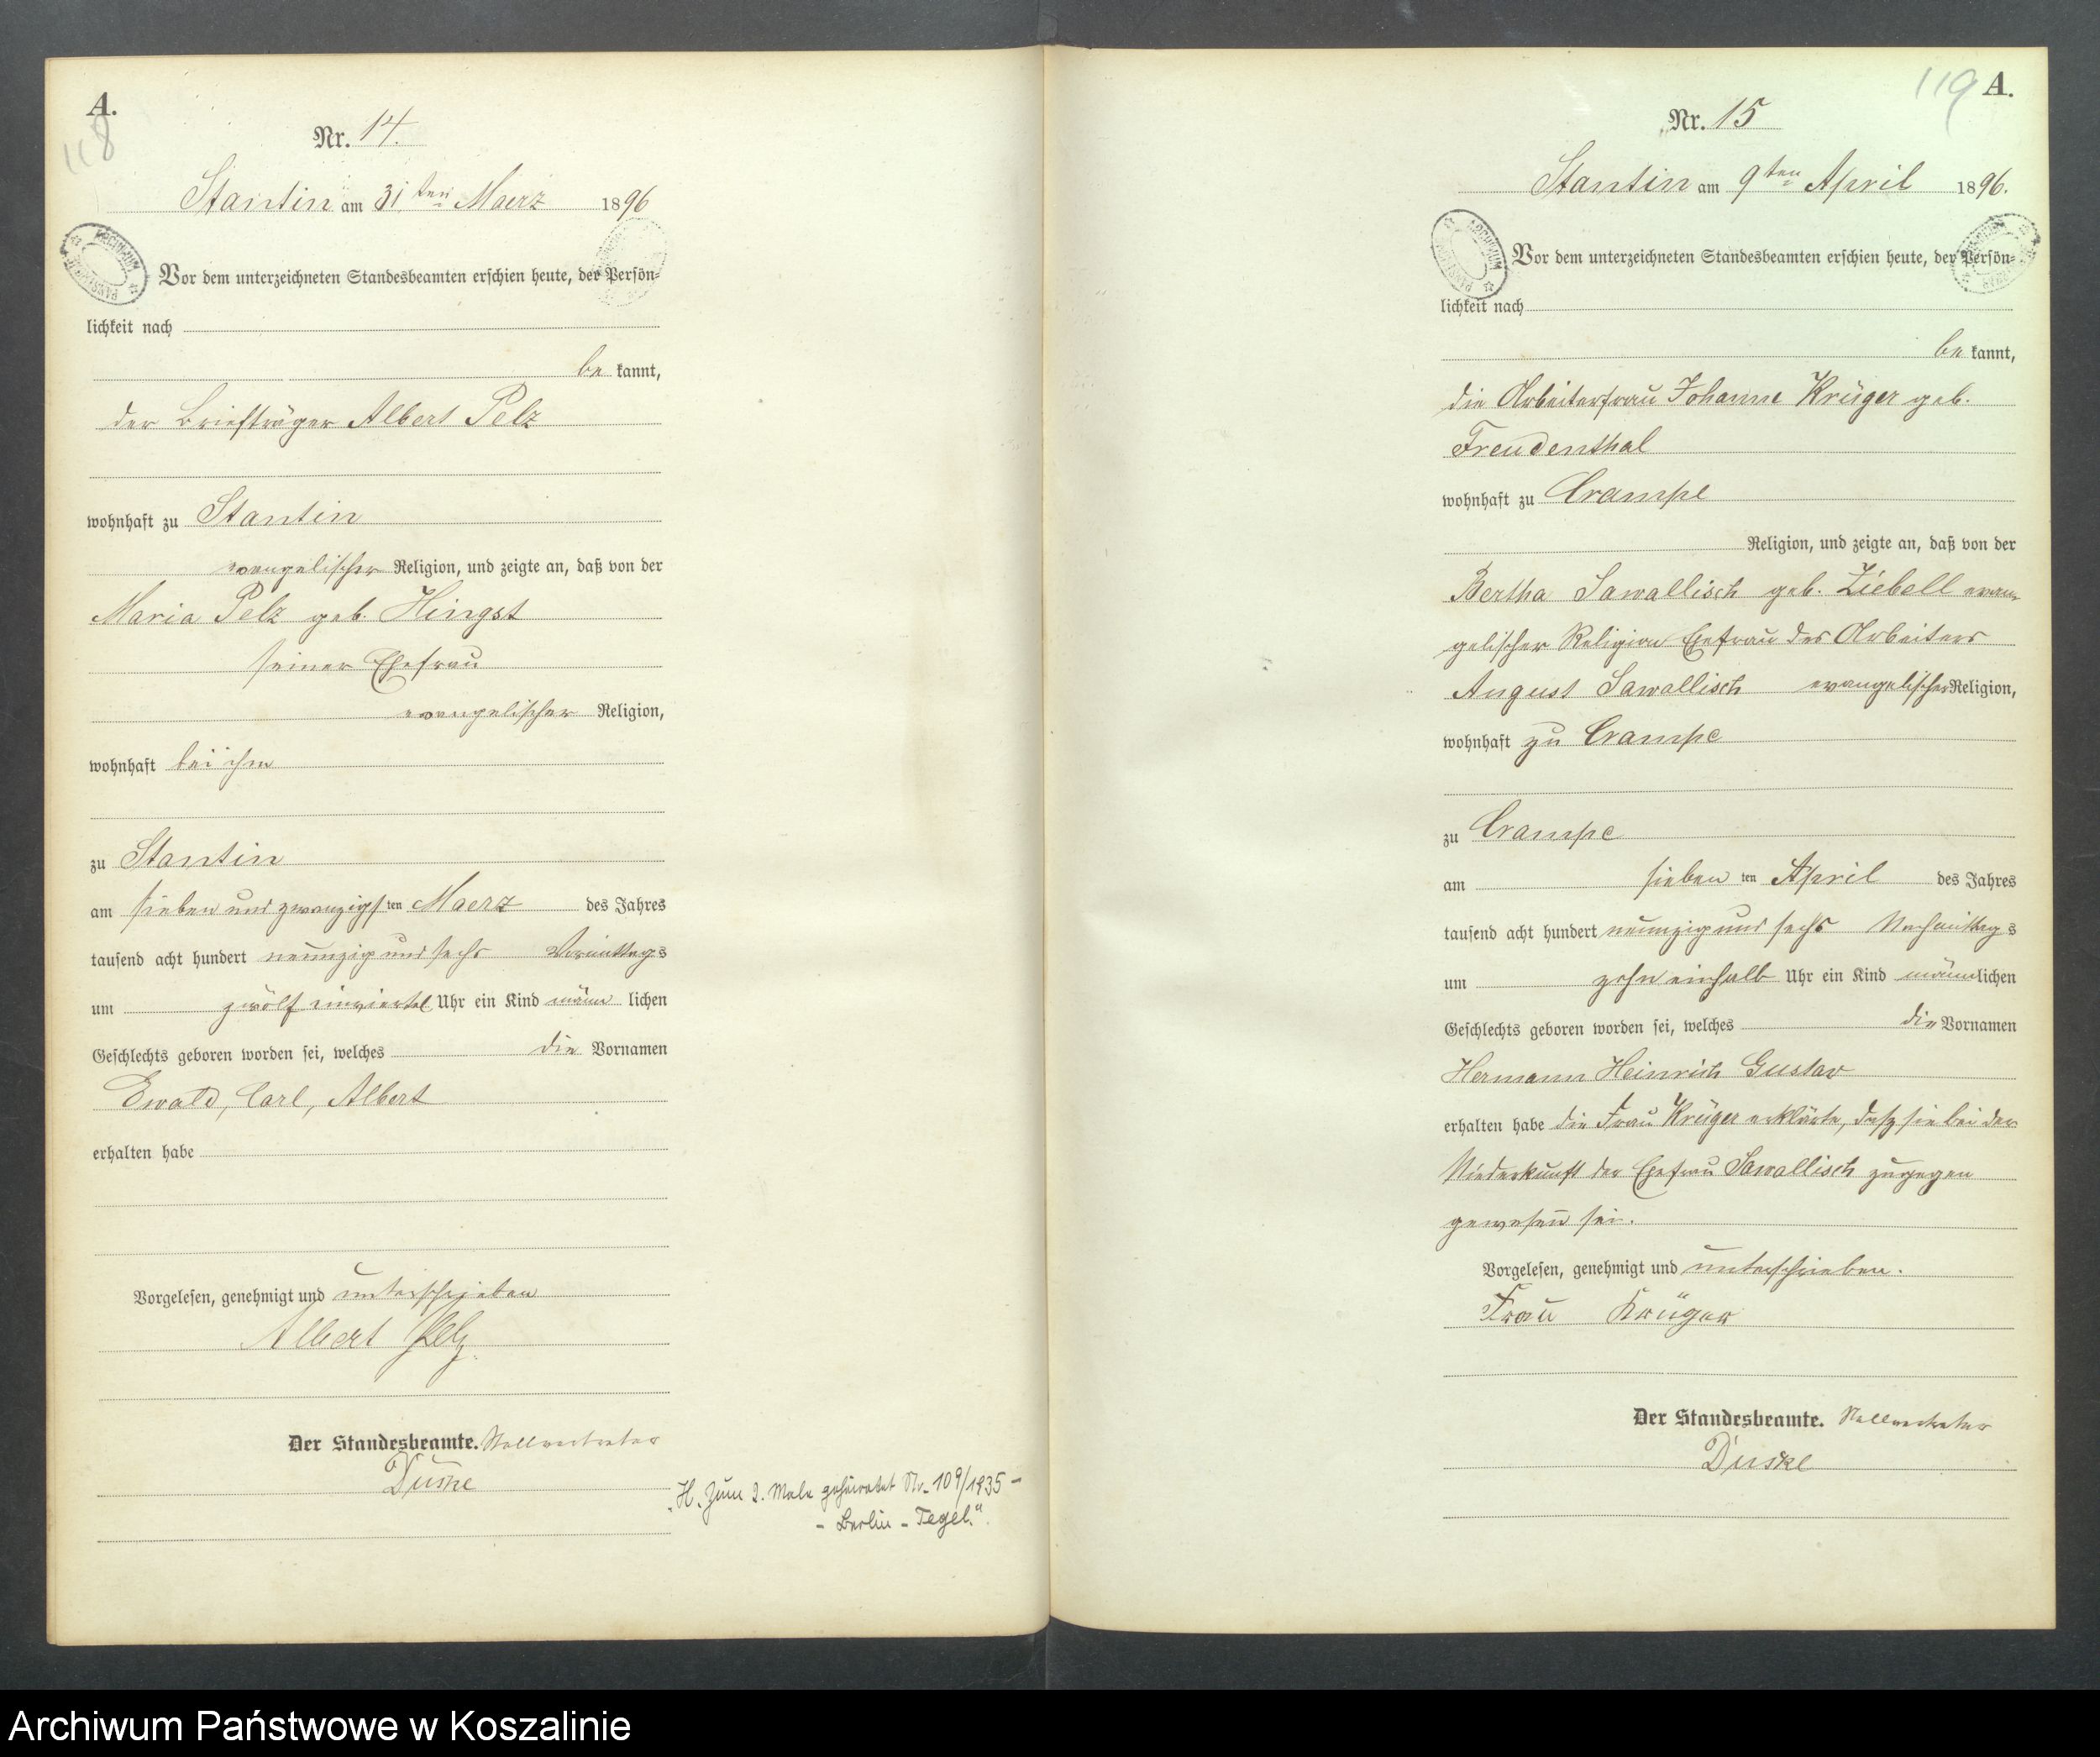 A.
118
Nr. 14.
Stantin am 31ten Maerz 1896
Vor dem unterzeichneten Standesbeamten erschien heute, der Persön-
lichkeit nach
be kannt,
der Briefträger Albert Pelz
wohnhaft zu Stantin
evangelischer Religion, und zeigte an, daß von der
Maria Pelz geb. Hingst
seiner Ehefrau
evangelischer Religion,
wohnhaft bei ihm
zu Stantin
am sieben und zwanzigsten Maerz des Jahres
tausend acht hundert neunzig und sechs Vormittags
um zwölf einviertel Uhr ein Kind männ lichen
Geschlechts geboren worden sei, welches die Vornamen
Ewald, Carl, Albert
erhalten habe
Vorgelesen, genehmigt und unterschrieben
Albert Pelz.
Der Standesbeamte. Stellvertreter
"H. Zum 2. Male geheiratet Nr. 109/1935 -
- Berlin - Tegel."
119 A.
Nr. 15
Stantin am 9ten April 1896.
ARCHIWUM
Vor dem unterzeichneten Standesbeamten erschien heute, der Persön-
lichkeit nach
be kannt,
die Arbeiterfrau Johanne Krüger geb.
Freudenthal
wohnhaft zu Crampe
Religion, und zeigte an, daß von der
Bertha Sawallisch geb. Ziebell evan-
gelischer Religion Ehefrau des Arbeiters
August Sawallisch evangelischer Religion,
wohnhaft zu Crampe
zu Crampe
am sieben ten April des Jahres
tausend acht hundert neunzig und sechs Nachmittags
um zehn einhalb Uhr ein Kind männlichen
Geschlechts geboren worden sei, welches die Vornamen
Hermann Heinrich Gustav
erhalten habe die Frau Krüger erklärte, daß sie bei der
Niederkunft der Ehefrau Sawallisch zugegen
gewesen sei.
Vorgelesen, genehmigt und unterschrieben.
Frau Krüger
Der Standesbeamte. Stellvertreter
Archiwum Państwowe w Koszalinie